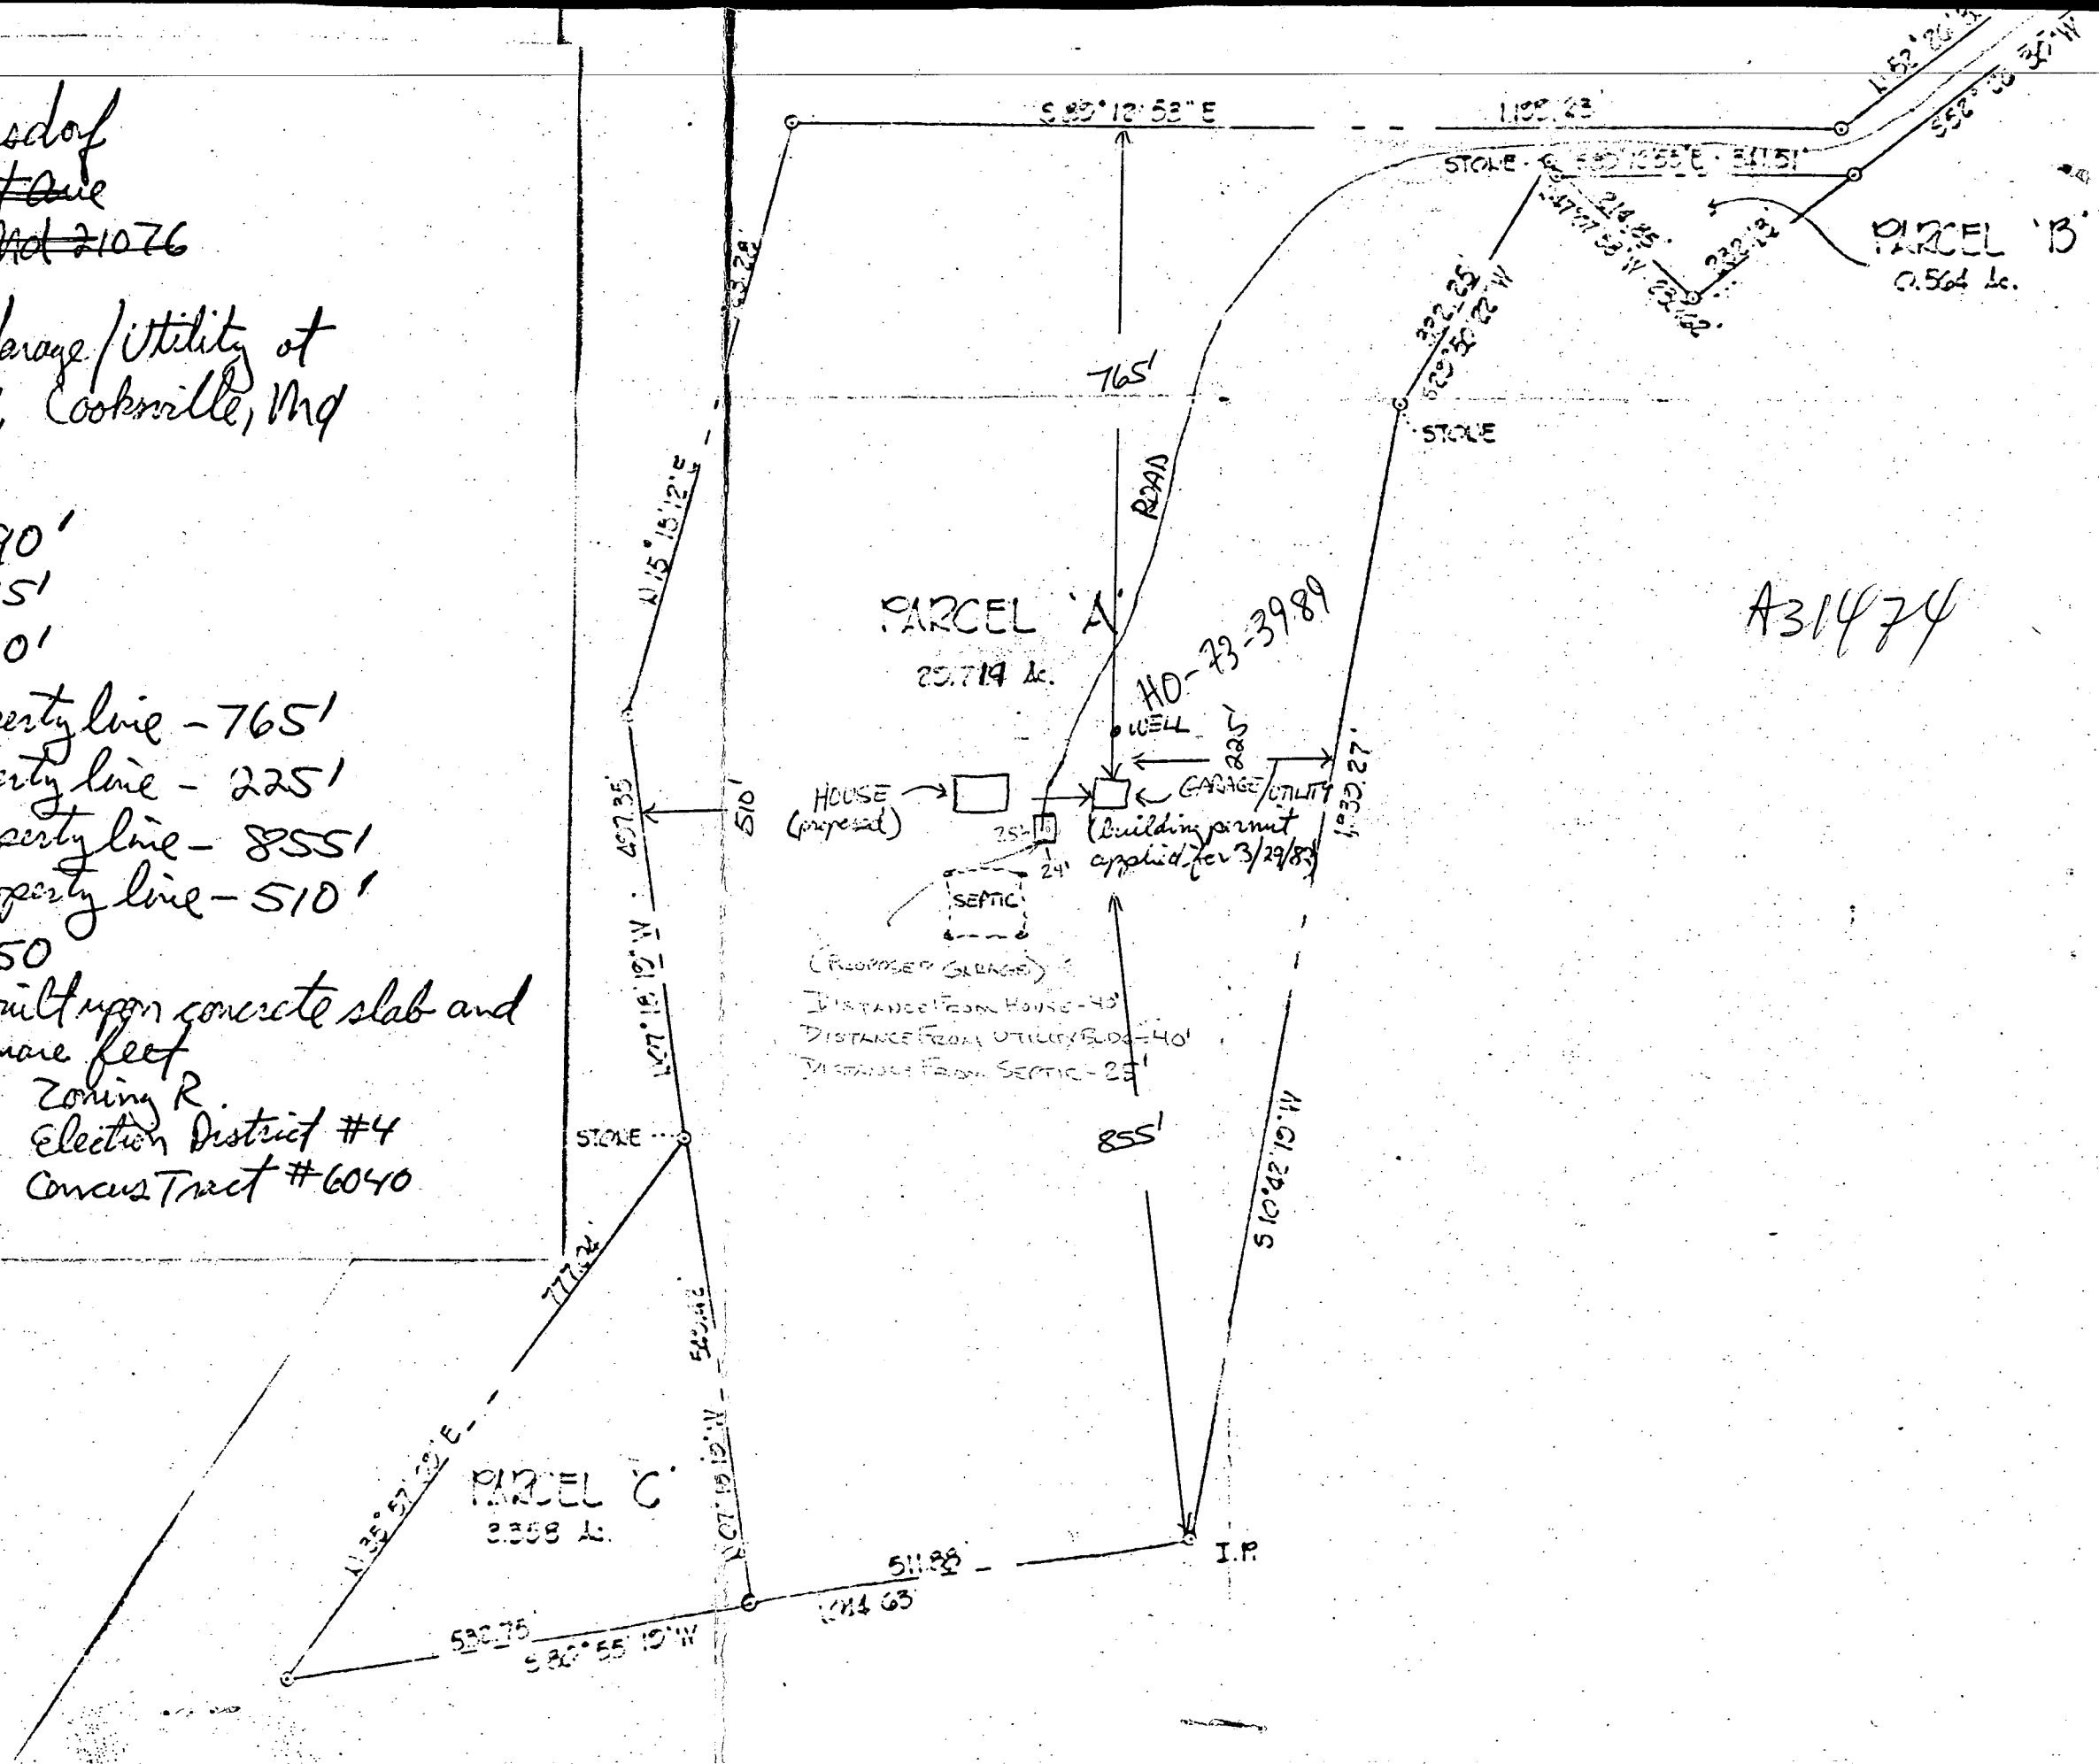 sdorf
t Ave
Md 21076
Garage/Utility at
, Cooksville, Md
90'
5'
0'
erty line - 765'
erty line - 225'
perty line - 855'
operty line - 510'
50
built upon concrete slab and
uare feet
Zoning R.
Election District #4
Concus Tract #6040
S 89° 12' 53" E
STONE
311.51'
214.85'
232.19'
PARCEL 'B'
0.564 Ac.
322.25'
S29° 50' 22" W
STONE
765'
ROAD
N 15° 15' 12" E
PARCEL 'A'
HO-73-3989
A31474
WELL
225'
497.35'
510'
HOUSE
(proposed)
GARAGE/UTILITY
(building permit
applied for 3/29/83)
25'
24'
SEPTIC
N07° 18' 19" W
(PROPOSED GARAGE)
DISTANCE FROM HOUSE - 40'
DISTANCE FROM UTILITY BLDG - 40'
DISTANCE FROM SEPTIC - 25'
855'
S 10° 42' 19" W
STONE
777.21'
N 07° 18' 19" W
PARCEL 'C'
3.358 Ac.
511.88'
I.P.
532.75'
S 80° 55' 19" W